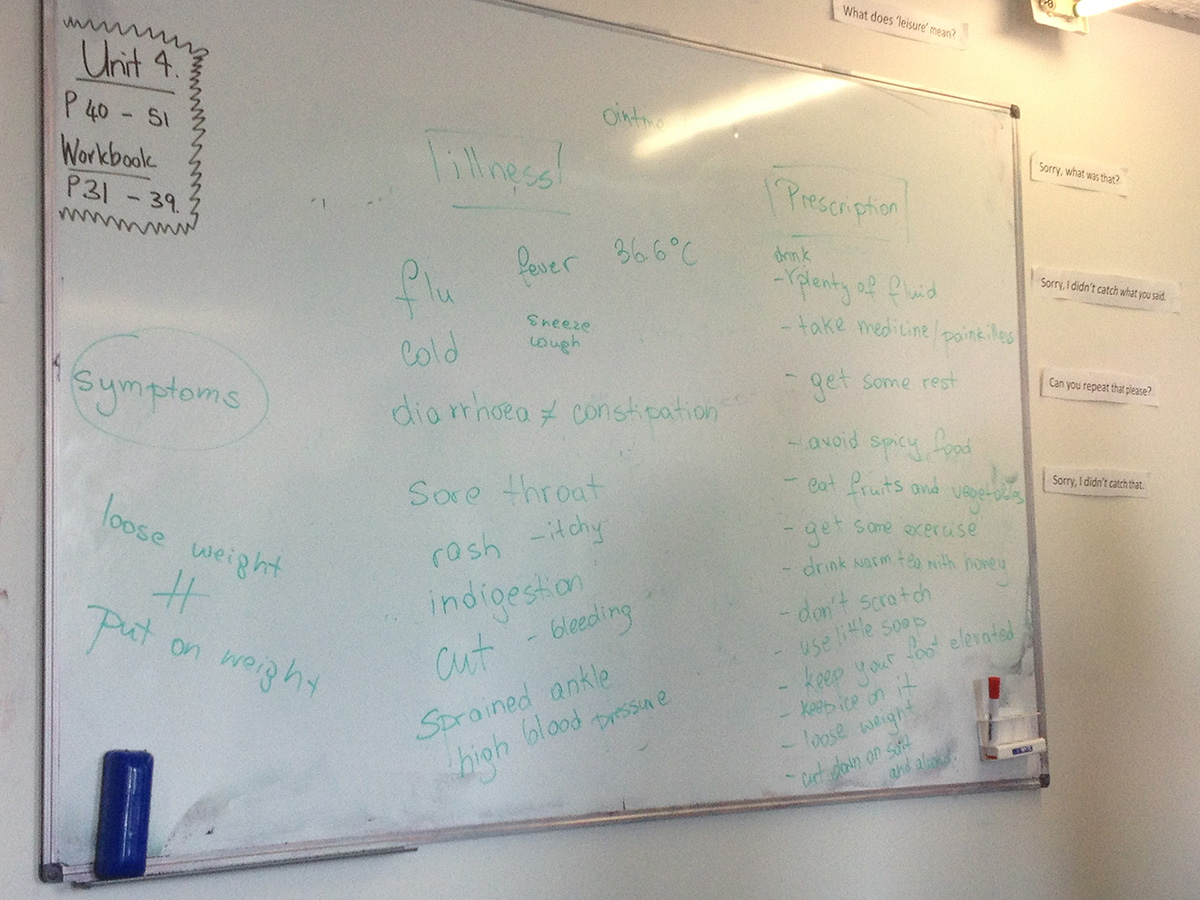 What does 'leisure' mean?
Unit 4.
P 40 - 51
Workbook
P31 - 39.
illness
fever 36.6°C
flu
sneeze
cold
cough
diarrhoea ≠ constipation
sore throat
rash - itchy
indigestion
cut - bleeding
Sprained ankle
high blood pressure
symptoms
loose weight
≠
put on weight
Prescription
drink
- plenty of fluid
- take medicine/painkillers
- get some rest
- avoid spicy food
- eat fruits and vegetables
- get some exercise
- drink warm tea with honey
- don't scratch
- use little soap
- keep your foot elevated
- keep ice on it
- loose weight
- cut down on salt
and alcohol.
Sorry, what was that?
Sorry, I didn't catch what you said.
Can you repeat that please?
Sorry, I didn't catch that.